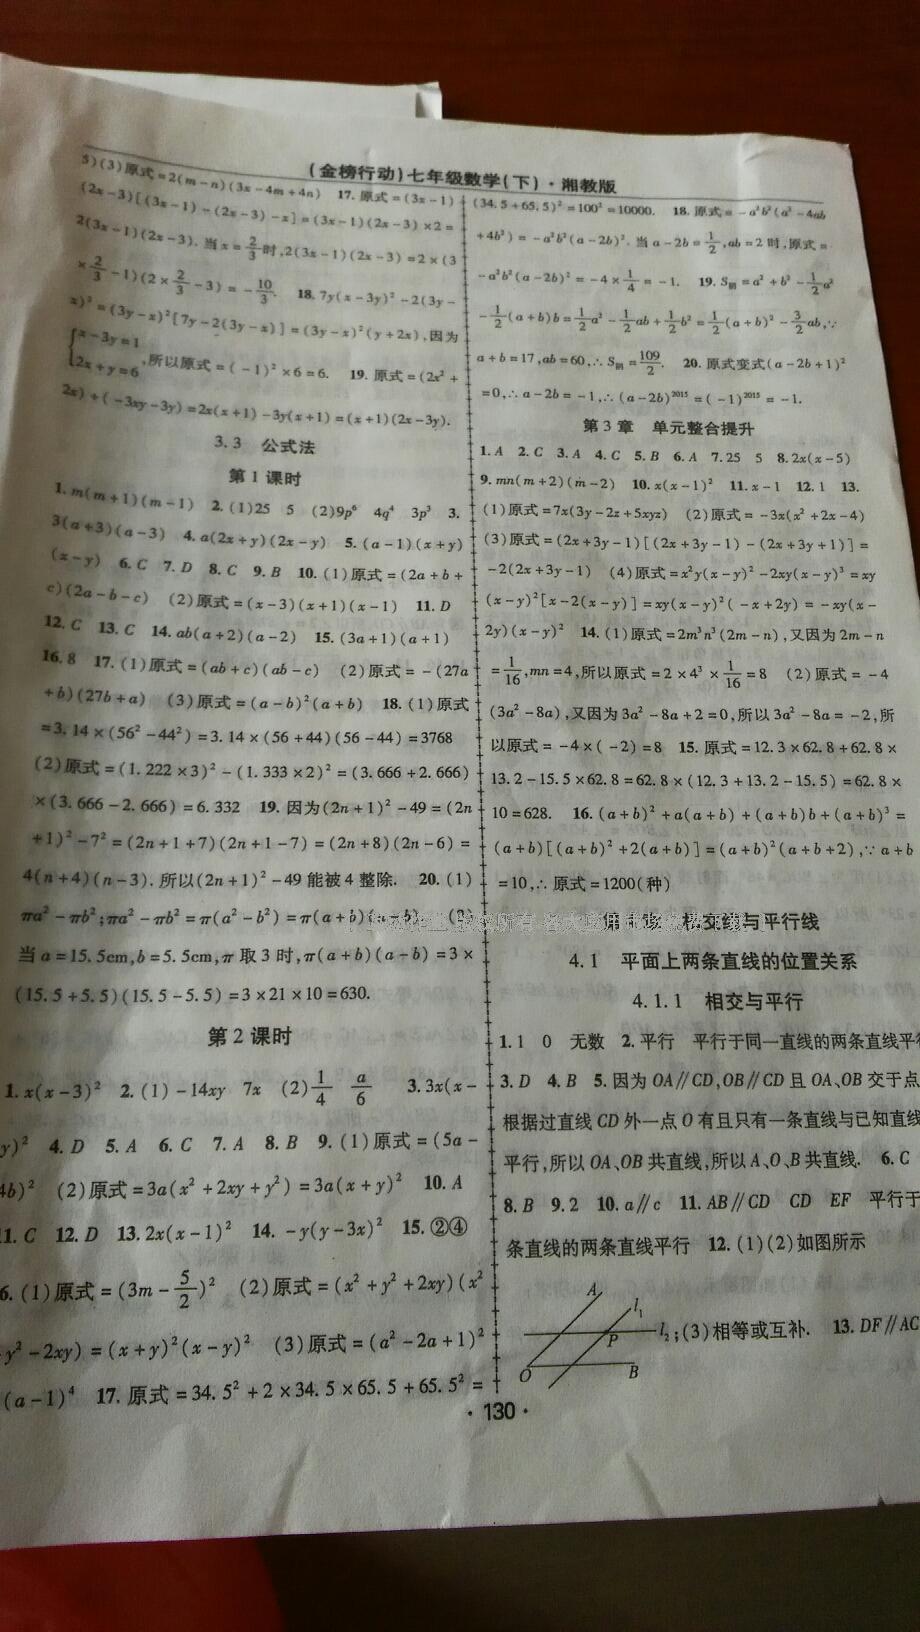 (金榜行动)七年级数学(下)·湘教版
5)(3)原式=2(m-n)(3x-4m+4n) 17.原式=(3x-1)
(2x-3)[(3x-1)-(2x-3)-x]=(3x-1)(2x-3)×2=
2(3x-1)(2x-3).当x=2/3时,2(3x-1)(2x-3)=2×(3
×2/3-1)(2×2/3-3)=-10/3. 18.7y(x-3y)²-2(3y-
x)³=(3y-x)²[7y-2(3y-x)]=(3y-x)²(y+2x),因为
{x-3y=1
2x+y=6,所以原式=(-1)²×6=6. 19.原式=(2x²+
2x)+(-3xy-3y)=2x(x+1)-3y(x+1)=(x+1)(2x-3y).
3.3 公式法
第1课时
1.m(m+1)(m-1) 2.(1)25 5 (2)9p⁶ 4q⁴ 3p³ 3.
3(a+3)(a-3) 4.a(2x+y)(2x-y) 5.(a-1)(x+y)
(x-y) 6.C 7.D 8.C 9.B 10.(1)原式=(2a+b+
c)(2a-b-c) (2)原式=(x-3)(x+1)(x-1) 11.D
12.C 13.C 14.ab(a+2)(a-2) 15.(3a+1)(a+1)
16.8 17.(1)原式=(ab+c)(ab-c) (2)原式=-(27a
+b)(27b+a) (3)原式=(a-b)²(a+b) 18.(1)原式
=3.14×(56²-44²)=3.14×(56+44)(56-44)=3768
(2)原式=(1.222×3)²-(1.333×2)²=(3.666+2.666)
×(3.666-2.666)=6.332 19.因为(2n+1)²-49=(2n
+1)²-7²=(2n+1+7)(2n+1-7)=(2n+8)(2n-6)=
4(n+4)(n-3).所以(2n+1)²-49能被4整除. 20.(1)
πa²-πb²;πa²-πb²=π(a²-b²)=π(a+b)(a-b) (2)
当a=15.5cm,b=5.5cm,π取3时,π(a+b)(a-b)=3×
(15.5+5.5)(15.5-5.5)=3×21×10=630.
第2课时
1.x(x-3)² 2.(1)-14xy 7x (2)1/4 a/6 3.3x(x-
y)² 4.D 5.A 6.C 7.A 8.B 9.(1)原式=(5a-
4b)² (2)原式=3a(x²+2xy+y²)=3a(x+y)² 10.A
11.C 12.D 13.2x(x-1)² 14.-y(y-3x)² 15.②④
6.(1)原式=(3m-5/2)² (2)原式=(x²+y²+2xy)(x²
y²-2xy)=(x+y)²(x-y)² (3)原式=(a²-2a+1)²
(a-1)⁴ 17.原式=34.5²+2×34.5×65.5+65.5²=
(34.5+65.5)²=100²=10000. 18.原式=-a²b²(a²-4ab
+4b²)=-a²b²(a-2b)².当a-2b=1/2,ab=2时,原式=
-a²b²(a-2b)²=-4×1/4=-1. 19.S阴=a²+b²-1/2a²
-1/2(a+b)b=1/2a²-1/2ab+1/2b²=1/2(a+b)²-3/2ab,∵
a+b=17,ab=60,∴S阴=109/2. 20.原式变式(a-2b+1)²
=0,∴a-2b=-1,∴(a-2b)²⁰¹⁵=(-1)²⁰¹⁵=-1.
第3章 单元整合提升
1.A 2.C 3.A 4.C 5.B 6.A 7.25 5 8.2x(x-5)
9.mn(m+2)(m-2) 10.x(x-1)² 11.x-1 12.1 13.
(1)原式=7x(3y-2z+5xyz) (2)原式=-3x(x²+2x-4)
(3)原式=(2x+3y-1)[(2x+3y-1)-(2x+3y+1)]=
-2(2x+3y-1) (4)原式=x²y(x-y)²-2xy(x-y)³=xy
(x-y)²[x-2(x-y)]=xy(x-y)²(-x+2y)=-xy(x-
2y)(x-y)² 14.(1)原式=2m³n³(2m-n),又因为2m-n
=1/16,mn=4,所以原式=2×4³×1/16=8 (2)原式=-4
(3a²-8a),又因为3a²-8a+2=0,所以3a²-8a=-2,所
以原式=-4×(-2)=8 15.原式=12.3×62.8+62.8×
13.2-15.5×62.8=62.8×(12.3+13.2-15.5)=62.8×
10=628. 16.(a+b)²+a(a+b)+(a+b)b+(a+b)³=
(a+b)[(a+b)²+2(a+b)]=(a+b)²(a+b+2),∵a+b
=10,∴原式=1200(种)
相交线与平行线
4.1 平面上两条直线的位置关系
4.1.1 相交与平行
1.1 0 无数 2.平行 平行于同一直线的两条直线平行
3.D 4.B 5.因为OA∥CD,OB∥CD且OA、OB交于点
根据过直线CD外一点O有且只有一条直线与已知直线
平行,所以OA、OB共直线,所以A、O、B共直线. 6.C
8.B 9.2 10.a∥c 11.AB∥CD CD EF 平行于
条直线的两条直线平行 12.(1)(2)如图所示
A l₁
P l₂;(3)相等或互补. 13.DF∥AC
O B
·130·